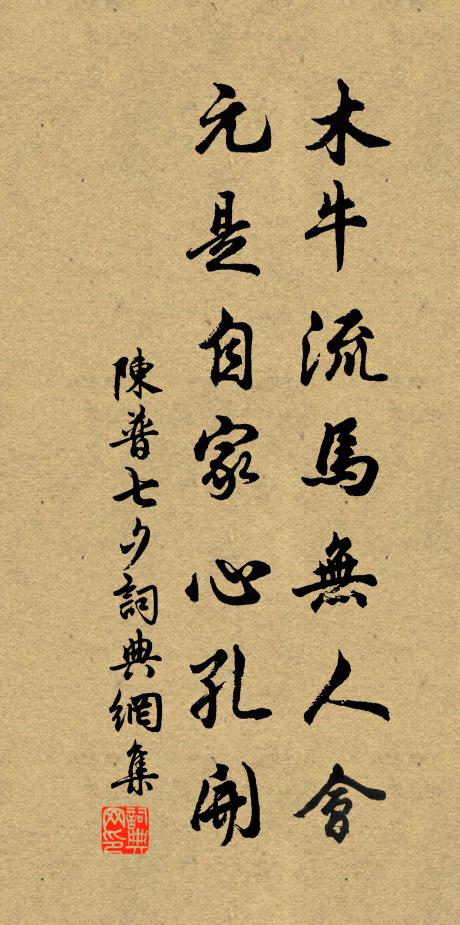 木牛流馬無人會
元是自家心孔開
陳普七夕詞典網集
詞典网印